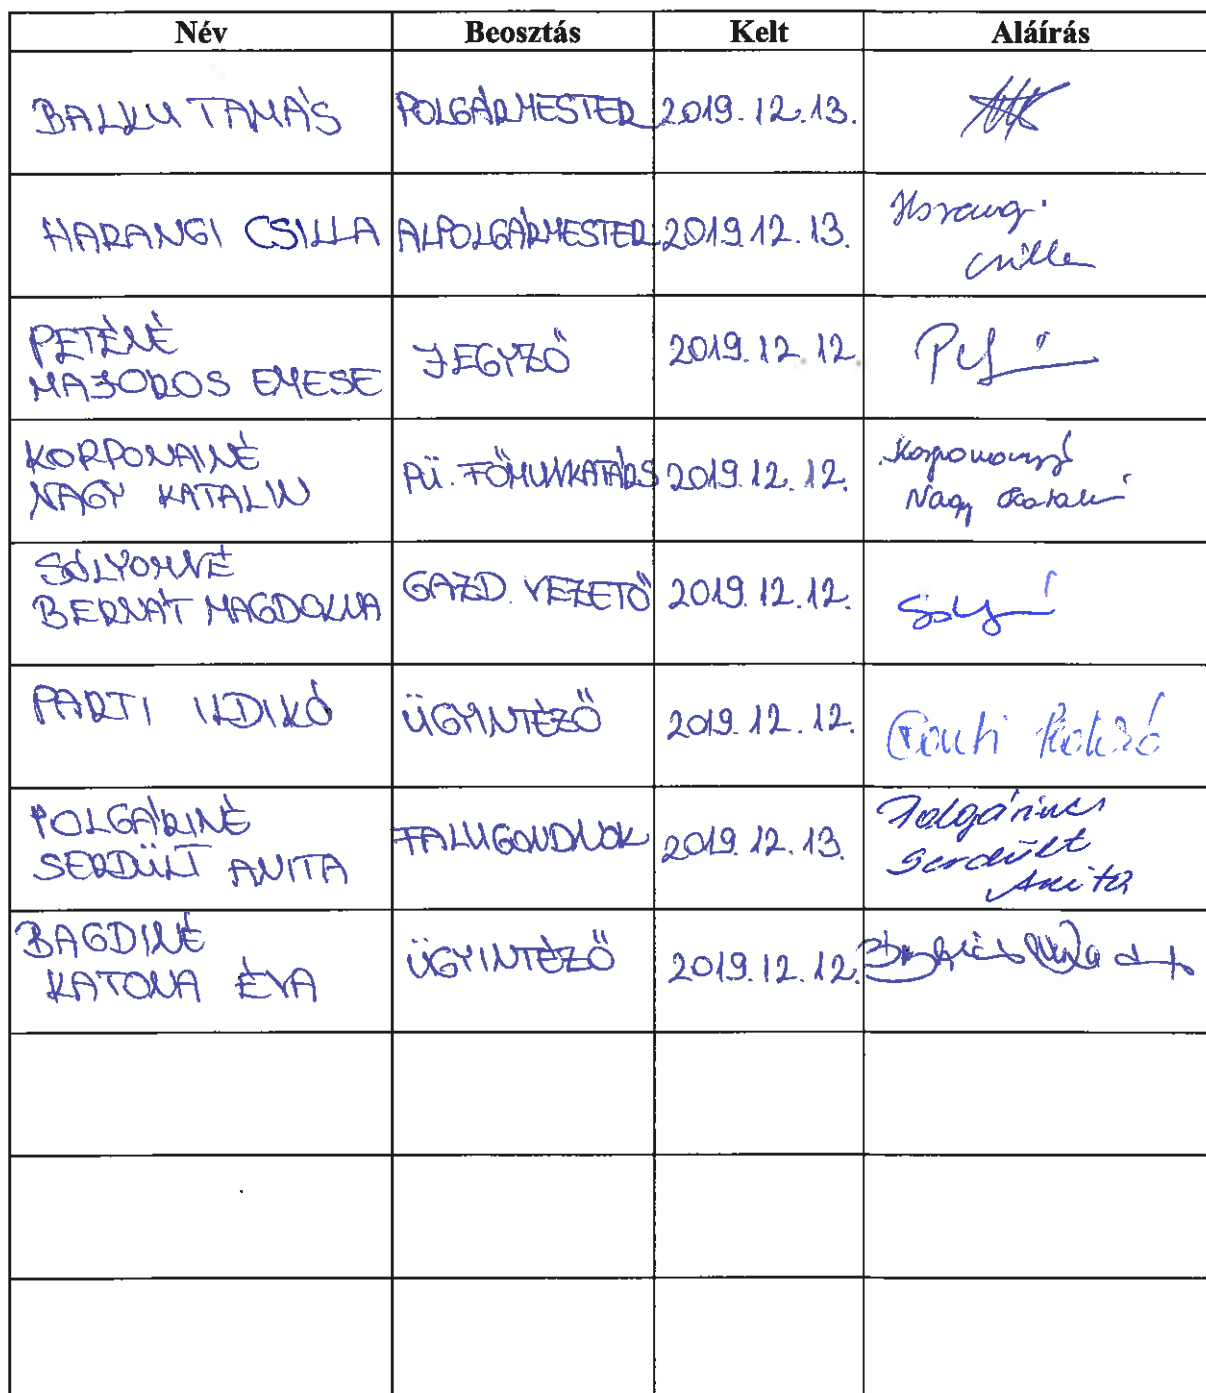 Név Beosztás Kelt Aláírás
BALKU TAMÁS POLGÁRMESTER 2019.12.13.
HARANGI CSILLA ALPOLGÁRMESTER 2019.12.13. Harangi
Csilla
PETÉNÉ
MAJOROS EMESE JEGYZŐ 2019.12.12.
KORPONAINÉ
NAGY KATALIN PÜ. FŐMUNKATÁRS 2019.12.12. Korponainé
Nagy Katalin
SÓLYOMNÉ
BERNÁT MAGDOLNA GAZD. VEZETŐ 2019.12.12.
PARTI ILDIKÓ ÜGYINTÉZŐ 2019.12.12. Parti Ildikó
POLGÁRINÉ
SERDÜLT ANITA FALUGONDNOK 2019.12.13. Polgáriné
Serdült
Anita
BAGDINÉ
KATONA ÉVA ÜGYINTÉZŐ 2019.12.12.